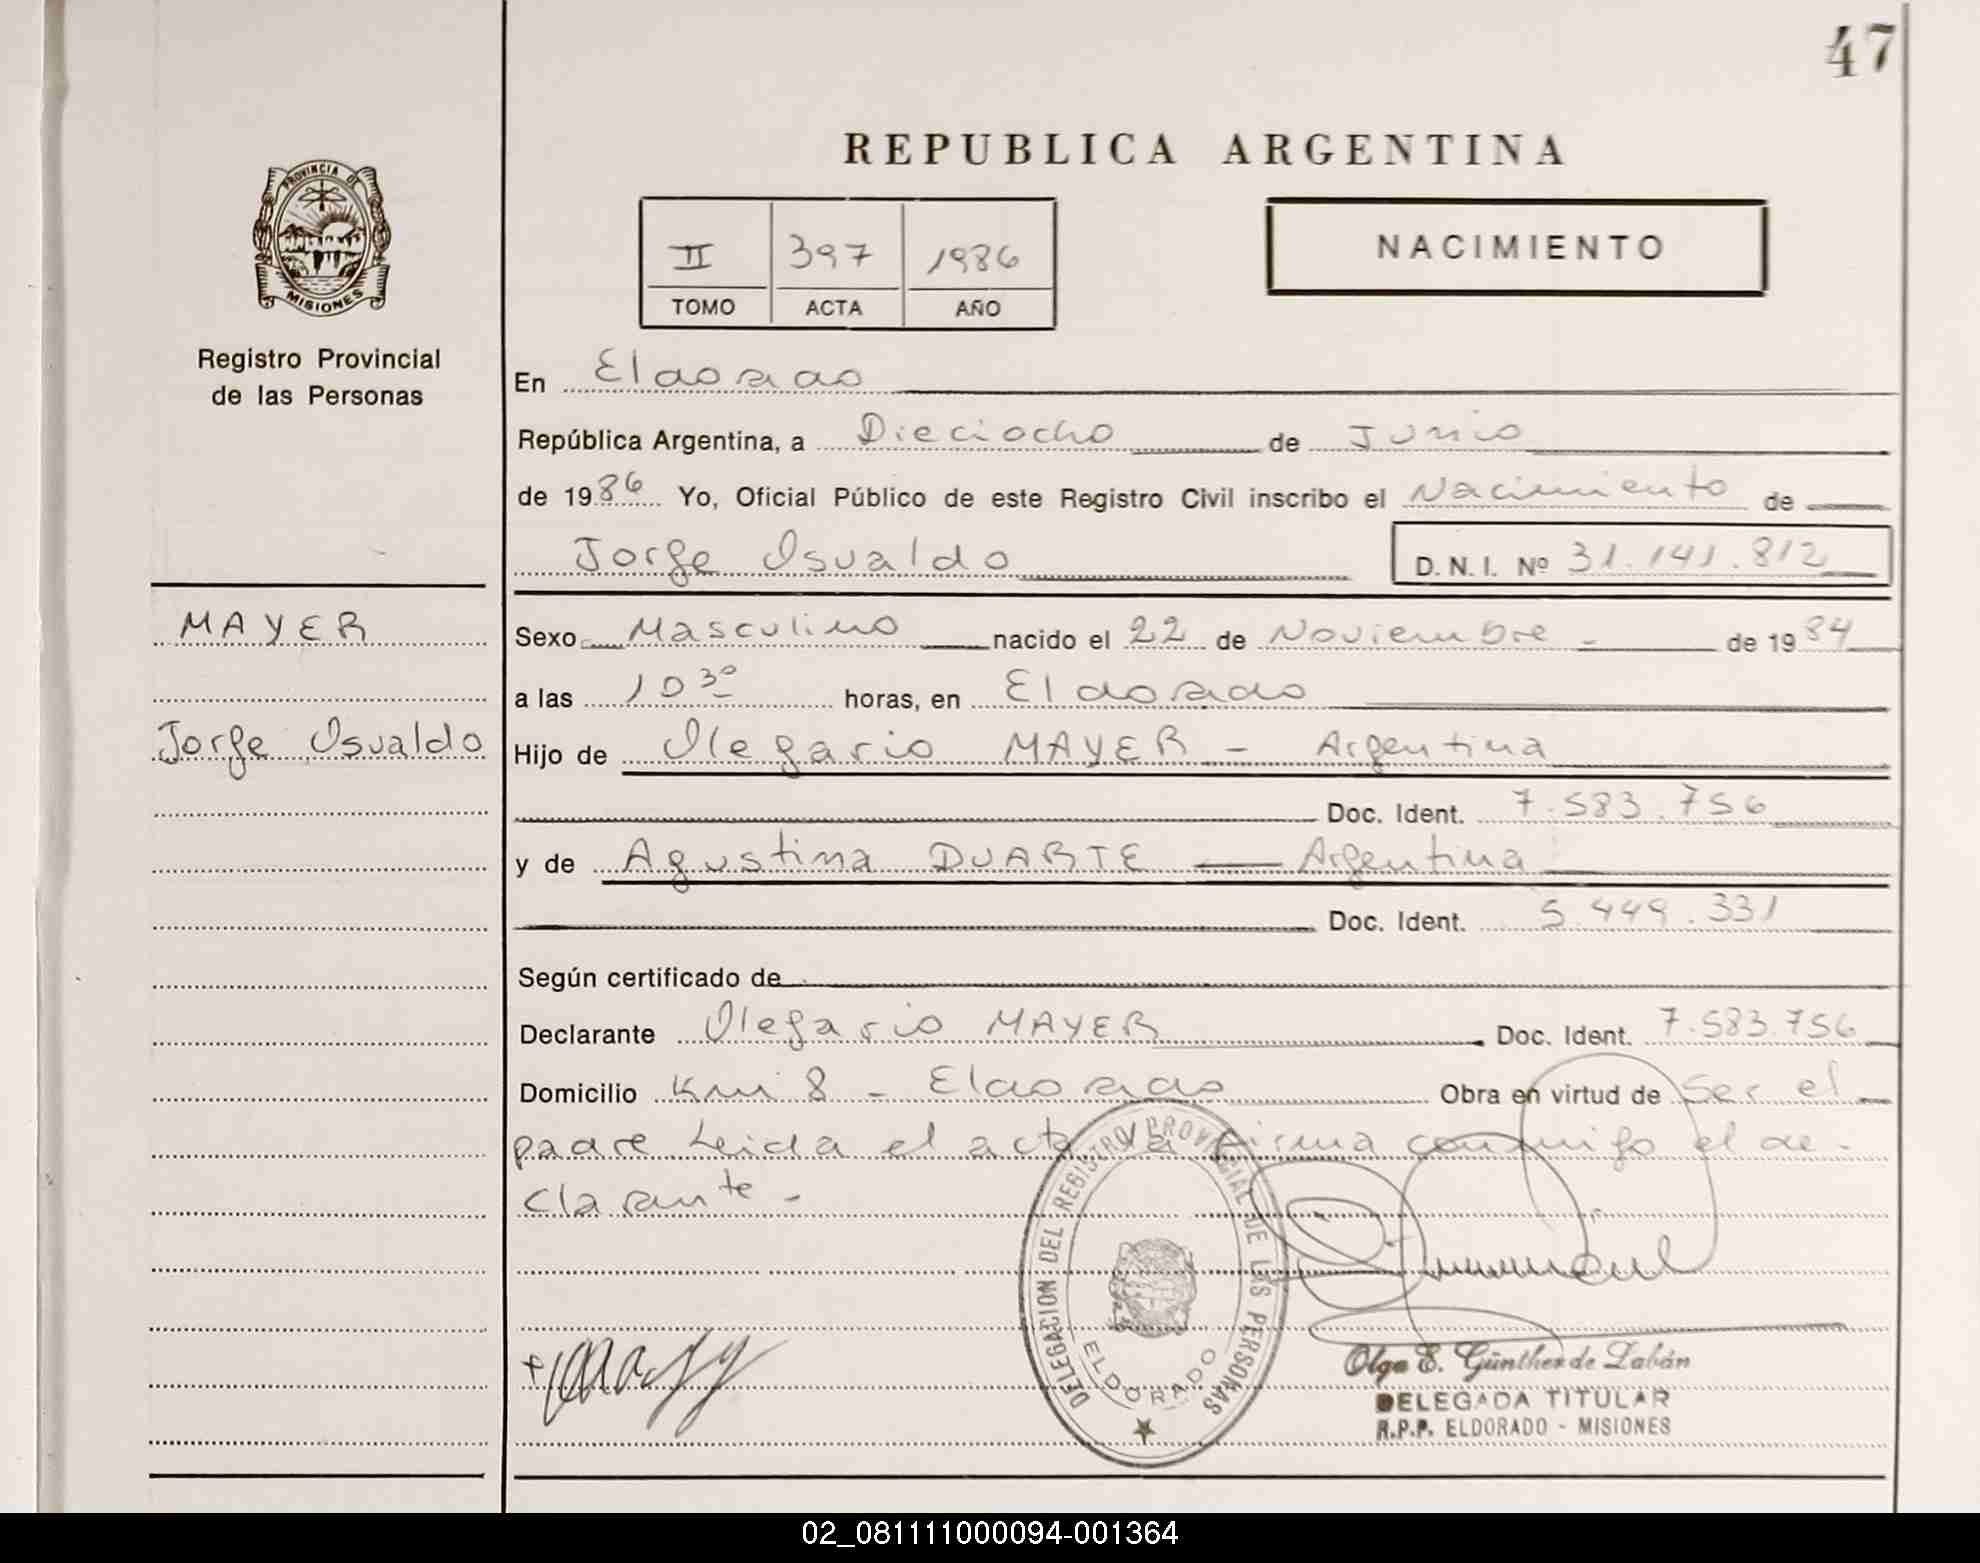 47
REPUBLICA ARGENTINA
PROVINCIA DE
MISIONES
Registro Provincial
de las Personas
II 397 1986
TOMO ACTA AÑO
NACIMIENTO
En Eldorado
República Argentina, a Dieciocho de Junio
de 1986 Yo, Oficial Público de este Registro Civil inscribo el Nacimiento de
Jorge Osvaldo D. N. I. Nº 31.141.812
MAYER
Jorge Osvaldo
Sexo Masculino nacido el 22 de Noviembre - de 1984
a las 10 30 horas, en Eldorado
Hijo de Olegario MAYER - Argentina
Doc. Ident. 7.583.756
y de Agustina DUARTE — Argentina
Doc. Ident. 5.449.331
Según certificado de
Declarante Olegario MAYER Doc. Ident. 7.583.756
Domicilio Km 8 - Eldorado Obra en virtud de Ser el
padre Leida el acta la firma conmigo el de-
clarante -
DELEGACION DEL REGISTRO PROVINCIAL DE LAS PERSONAS
ELDORADO
Olga E. Günther de Labán
DELEGADA TITULAR
R.P.P. ELDORADO - MISIONES
02_081111000094-001364